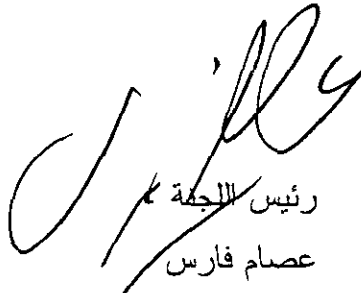 رئيس اللجنة
عصام فارس